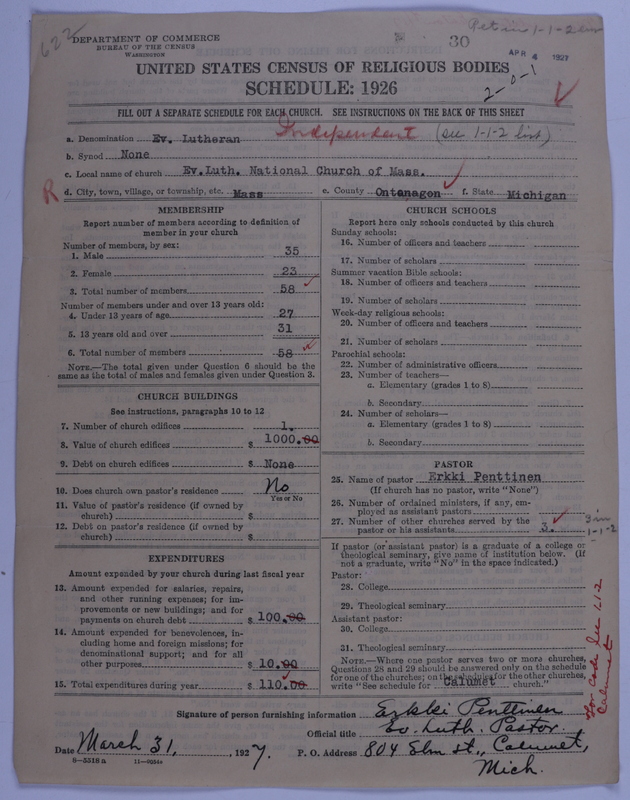 622
DEPARTMENT OF COMMERCE
BUREAU OF THE CENSUS
WASHINGTON
30
APR 4 1927
1-1-2
2-0-1
UNITED STATES CENSUS OF RELIGIOUS BODIES
SCHEDULE: 1926
FILL OUT A SEPARATE SCHEDULE FOR EACH CHURCH. SEE INSTRUCTIONS ON THE BACK OF THIS SHEET
a. Denomination Ev. Lutheran Independent (see 1-1-2 list)
b. Synod None
c. Local name of church Ev.Luth. National Church of Mass.
R
d. City, town, village, or township, etc. Mass e. County Ontonagon f. State Michigan
MEMBERSHIP
Report number of members according to definition of
member in your church
Number of members, by sex:
1. Male 35
2. Female 23
3. Total number of members 58
Number of members under and over 13 years old:
4. Under 13 years of age 27
5. 13 years old and over 31
6. Total number of members 58
NOTE.—The total given under Question 6 should be the
same as the total of males and females given under Question 3.
CHURCH BUILDINGS
See instructions, paragraphs 10 to 12
7. Number of church edifices 1.
8. Value of church edifices $ 1000.00
9. Debt on church edifices $ None
10. Does church own pastor's residence No
Yes or No
11. Value of pastor's residence (if owned by
church) $
12. Debt on pastor's residence (if owned by
church) $
EXPENDITURES
Amount expended by your church during last fiscal year
13. Amount expended for salaries, repairs,
and other running expenses; for im-
provements or new buildings; and for
payments on church debt $ 100.00
14. Amount expended for benevolences, in-
cluding home and foreign missions; for
denominational support; and for all
other purposes $ 10.00
15. Total expenditures during year $ 110.00
CHURCH SCHOOLS
Report here only schools conducted by this church
Sunday schools:
16. Number of officers and teachers
17. Number of scholars
Summer vacation Bible schools:
18. Number of officers and teachers
19. Number of scholars
Week-day religious schools:
20. Number of officers and teachers
21. Number of scholars
Parochial schools:
22. Number of administrative officers
23. Number of teachers—
a. Elementary (grades 1 to 8)
b. Secondary
24. Number of scholars—
a. Elementary (grades 1 to 8)
b. Secondary
PASTOR
25. Name of pastor Erkki Penttinen
(If church has no pastor, write "None")
26. Number of ordained ministers, if any, em-
ployed as assistant pastors
27. Number of other churches served by the
pastor or his assistants 3.
1-1-2
If pastor (or assistant pastor) is a graduate of a college or
theological seminary, give name of institution below. (If
not a graduate, write "No" in the space indicated.)
Pastor:
28. College
29. Theological seminary
Assistant pastor:
30. College
31. Theological seminary
NOTE.—Where one pastor serves two or more churches,
Questions 28 and 29 should be answered only on the schedule
for one of the churches; on the schedules for the other churches,
write "See schedule for Calumet church."
for code see 1-1-2
Calumet
Signature of person furnishing information Erkki Penttinen
Official title Ev. Luth. Pastor.
Date March 31, 1927. P. O. Address 804 Elm st., Calumet,
Mich.
8—5518 a 11—9034a